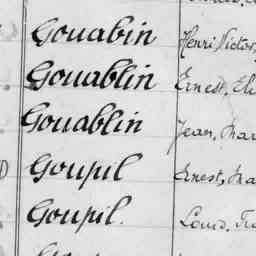 Gouabin Henri Victor,
Gouablin Ernest,
Gouablin Jean,
Goupil Ernest,
Goupil. Louis,